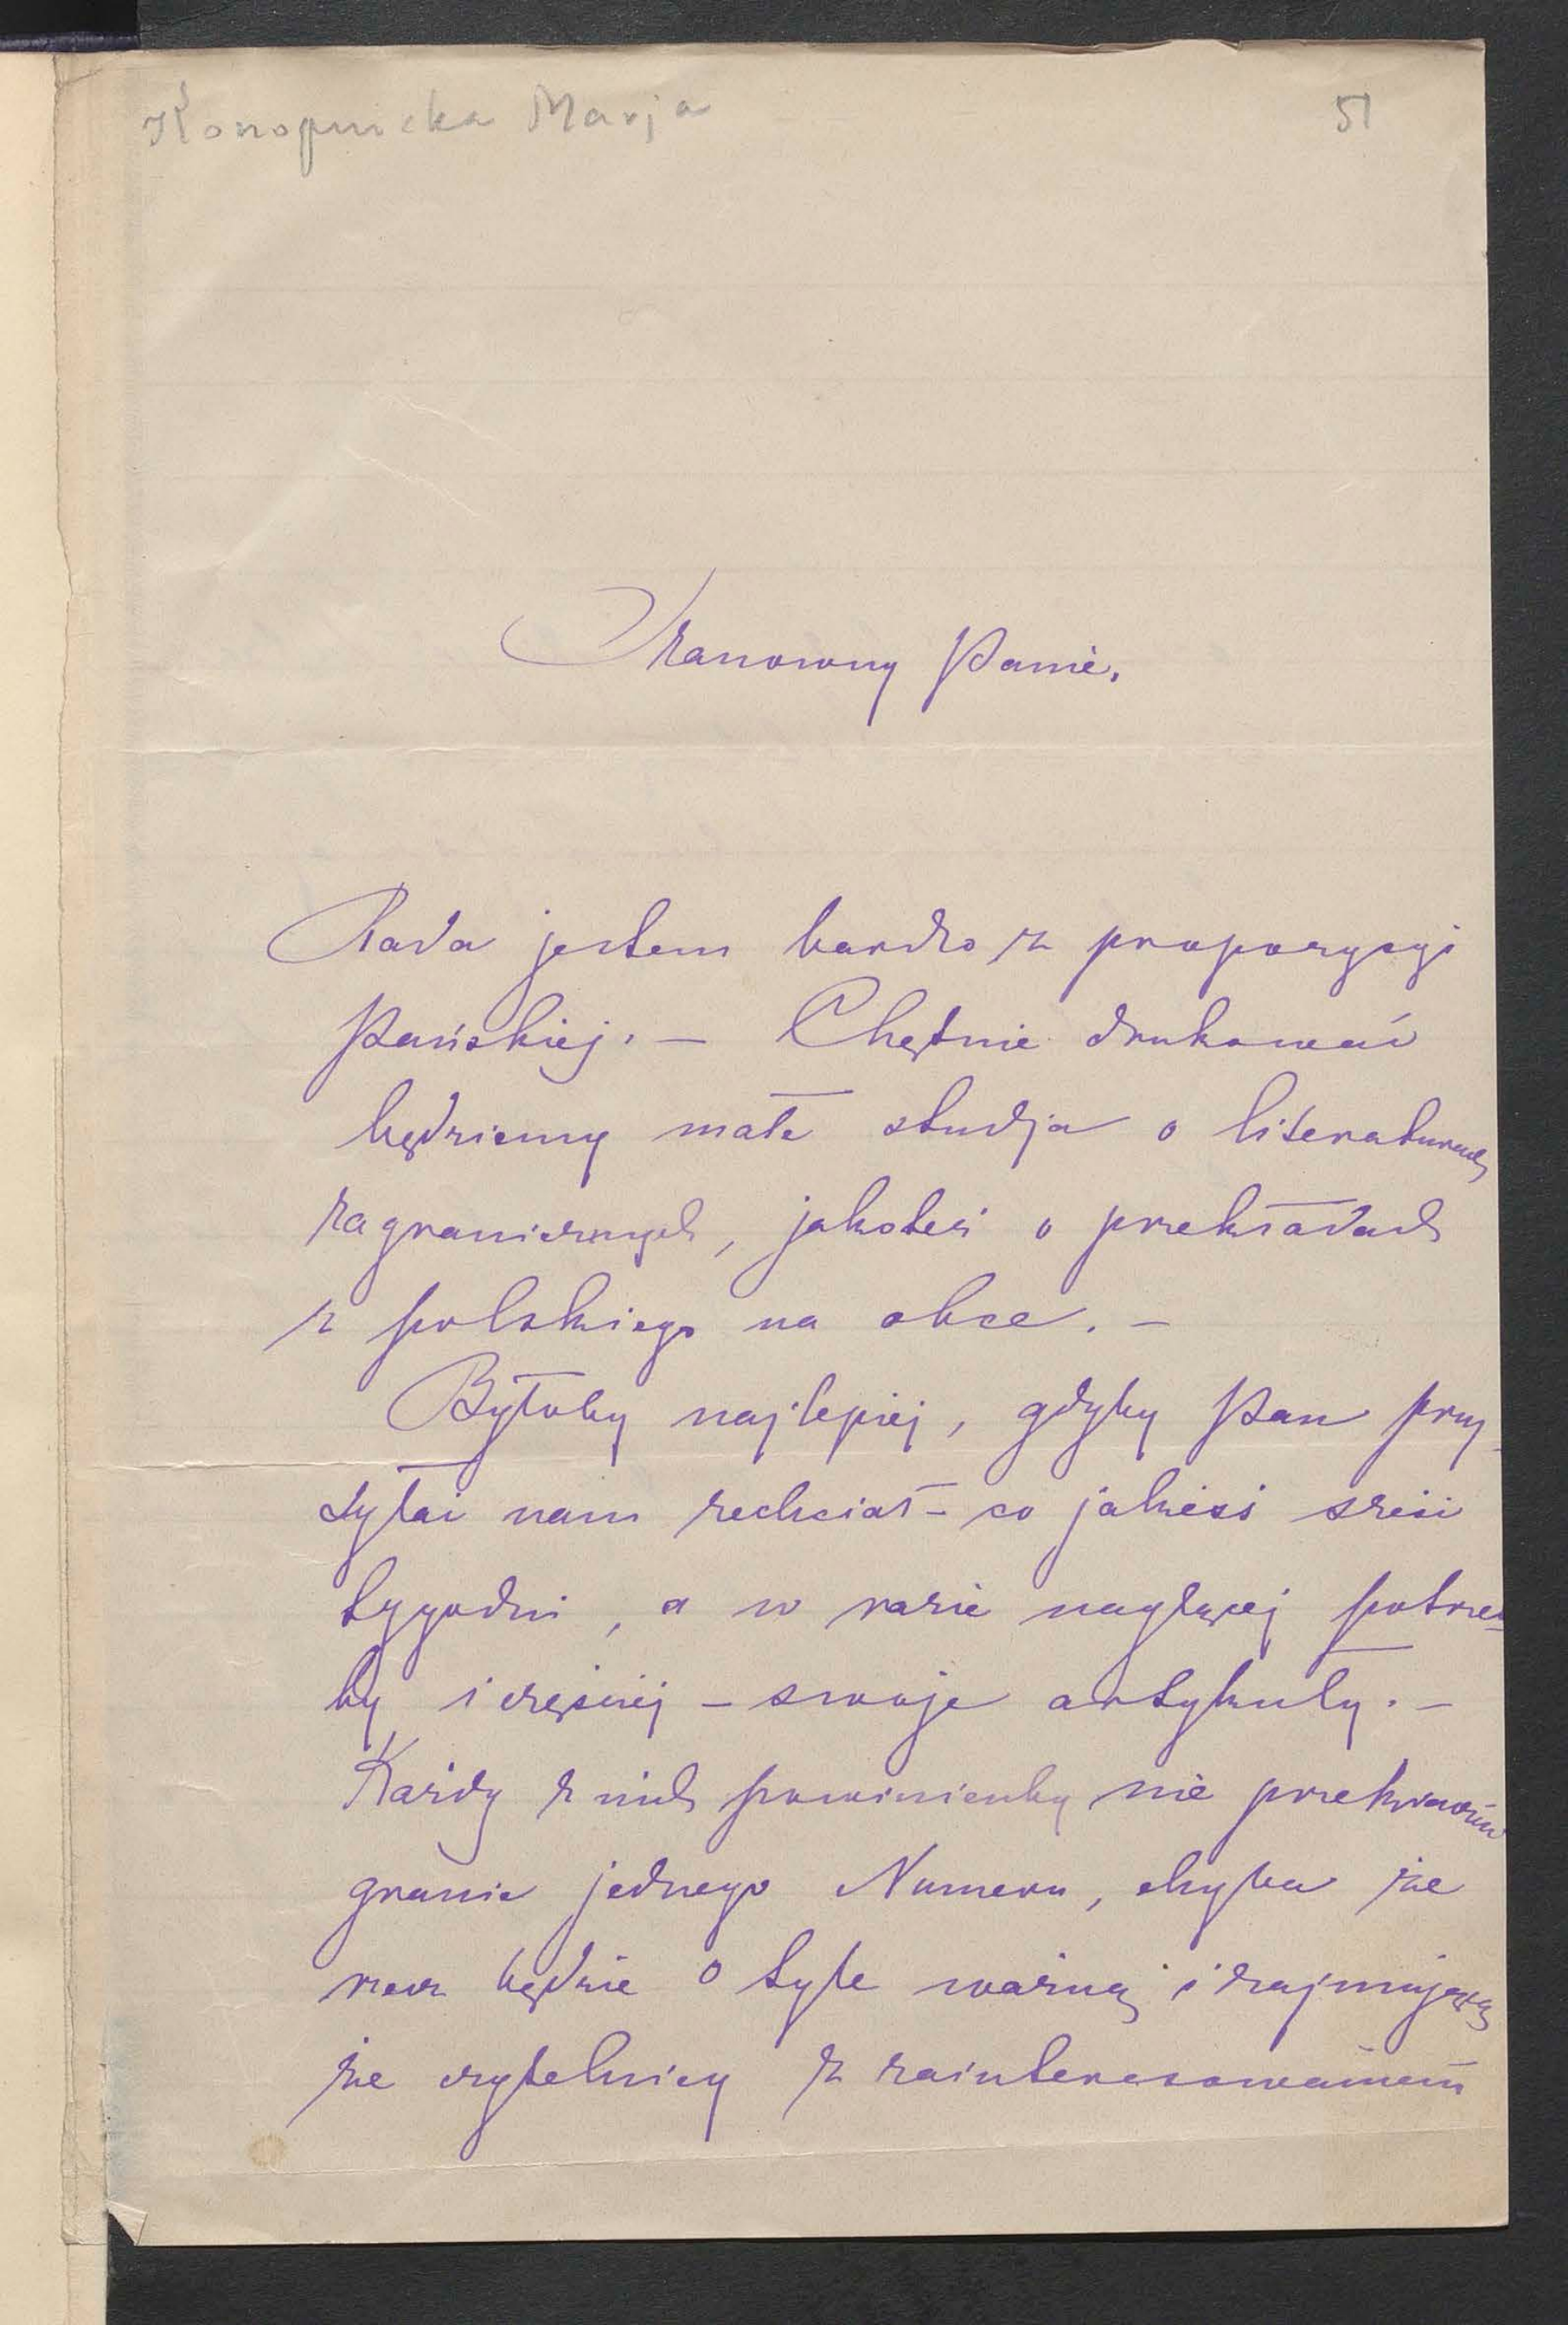 Konopnicka Marja
51
Szanowny Panie.
Rada jestem bardzo z propozycyi
Pańskiej. — Chętnie drukować
będziemy małe studja o literaturach
zagranicznych, jakoteż o przekładach
z polskiego na obce. —
Byłoby najlepiej, gdyby Pan przy-
syłać nam zechciał – co jakieś sześć
tygodni, a w razie nagłącej potrze-
by i częściej – swoje artykuły. —
Każdy z nich powinienby nie przekraczać
granic jednego Numeru, chyba że
rzecz będzie o tyle ważną i zajmującą
że czytelnicy z zainteresowaniem